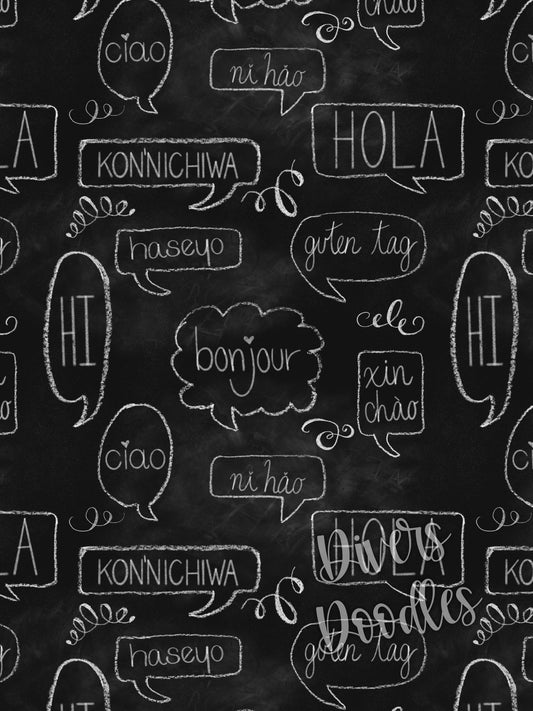 chào
ciao
nǐ hǎo
KON'NICHIWA
HOLA
LA
KO
haseyo
guten tag
HI
HI
bonjour
xin
chào
ciao
nǐ hǎo
HOLA
LA
KON'NICHIWA
KO
Divers
Doodles
haseyo
guten tag
HI